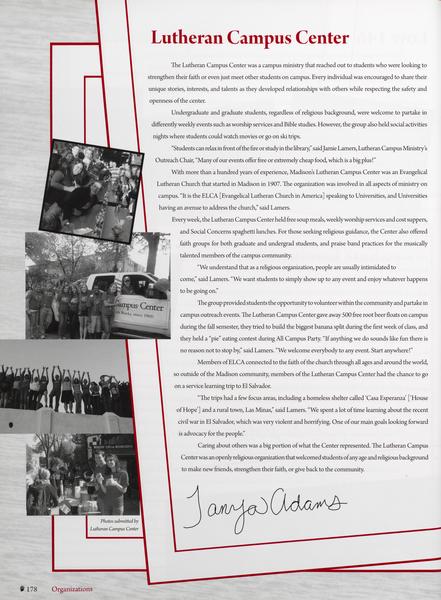 Lutheran Campus Center
The Lutheran Campus Center was a campus ministry that reached out to students who were looking to
strengthen their faith or even just meet other students on campus. Every individual was encouraged to share their
unique stories, interests, and talents as they developed relationships with others while respecting the safety and
openness of the center.
Undergraduate and graduate students, regardless of religious background, were welcome to partake in
differently weekly events such as worship services and Bible studies. However, the group also held social activities
nights where students could watch movies or go on ski trips.
"Students can relax in front of the fire or study in the library," said Jamie Lamers, Lutheran Campus Ministry's
Outreach Chair, "Many of our events offer free or extremely cheap food, which is a big plus!"
With more than a hundred years of experience, Madison's Lutheran Campus Center was an Evangelical
Lutheran Church that started in Madison in 1907. The organization was involved in all aspects of ministry on
campus. "It is the ELCA [Evangelical Lutheran Church in America] speaking to Universities, and Universities
having an avenue to address the church," said Lamers.
Every week, the Lutheran Campus Center held free soup meals, weekly worship services and cost suppers,
and Social Concerns spaghetti lunches. For those seeking religious guidance, the Center also offered
faith groups for both graduate and undergrad students, and praise band practices for the musically
talented members of the campus community.
"We understand that as a religious organization, people are usually intimidated to
come," said Lamers. "We want students to simply show up to any event and enjoy whatever happens
to be going on."
The group provided students the opportunity to volunteer within the community and partake in
campus outreach events. The Lutheran Campus Center gave away 500 free root beer floats on campus
during the fall semester, they tried to build the biggest banana split during the first week of class, and
they held a "pie" eating contest during All Campus Party. "If anything we do sounds like fun there is
no reason not to stop by," said Lamers. "We welcome everybody to any event. Start anywhere!"
Members of ELCA connected to the faith of the church through all ages and around the world,
so outside of the Madison community, members of the Lutheran Campus Center had the chance to go
on a service learning trip to El Salvador.
"The trips had a few focus areas, including a homeless shelter called 'Casa Esperanza' ['House
of Hope'] and a rural town, Las Minas," said Lamers. "We spent a lot of time learning about the recent
civil war in El Salvador, which was very violent and horrifying. One of our main goals looking forward
is advocacy for the people."
Caring about others was a big portion of what the Center represented. The Lutheran Campus
Center was an openly religious organization that welcomed students of any age and religious background
to make new friends, strengthen their faith, or give back to the community.
Tanya Adams
Campus Center
Photos submitted by
Lutheran Campus Center
178 Organizations